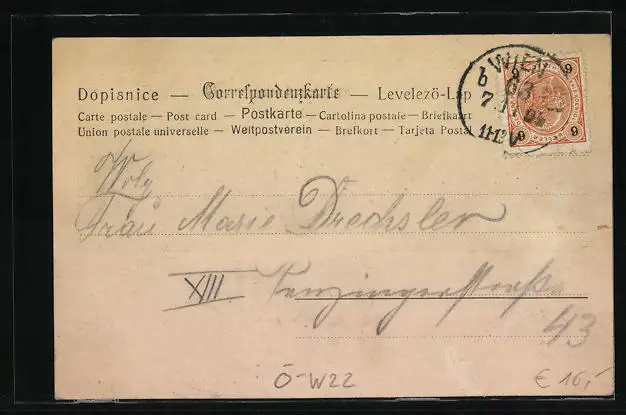 Dopisnice — Correspondenzkarte — Levelezö-Lap
Carte postale — Post card — Postkarte — Cartolina postale — Briefkaart
Union postale universelle — Weltpostverein — Brefkort — Tarjeta Postal
WIEN
9
9
9
Frau Marie Drechsler
XIII Penzingerstraße
43
Ö-W22
€ 16,-